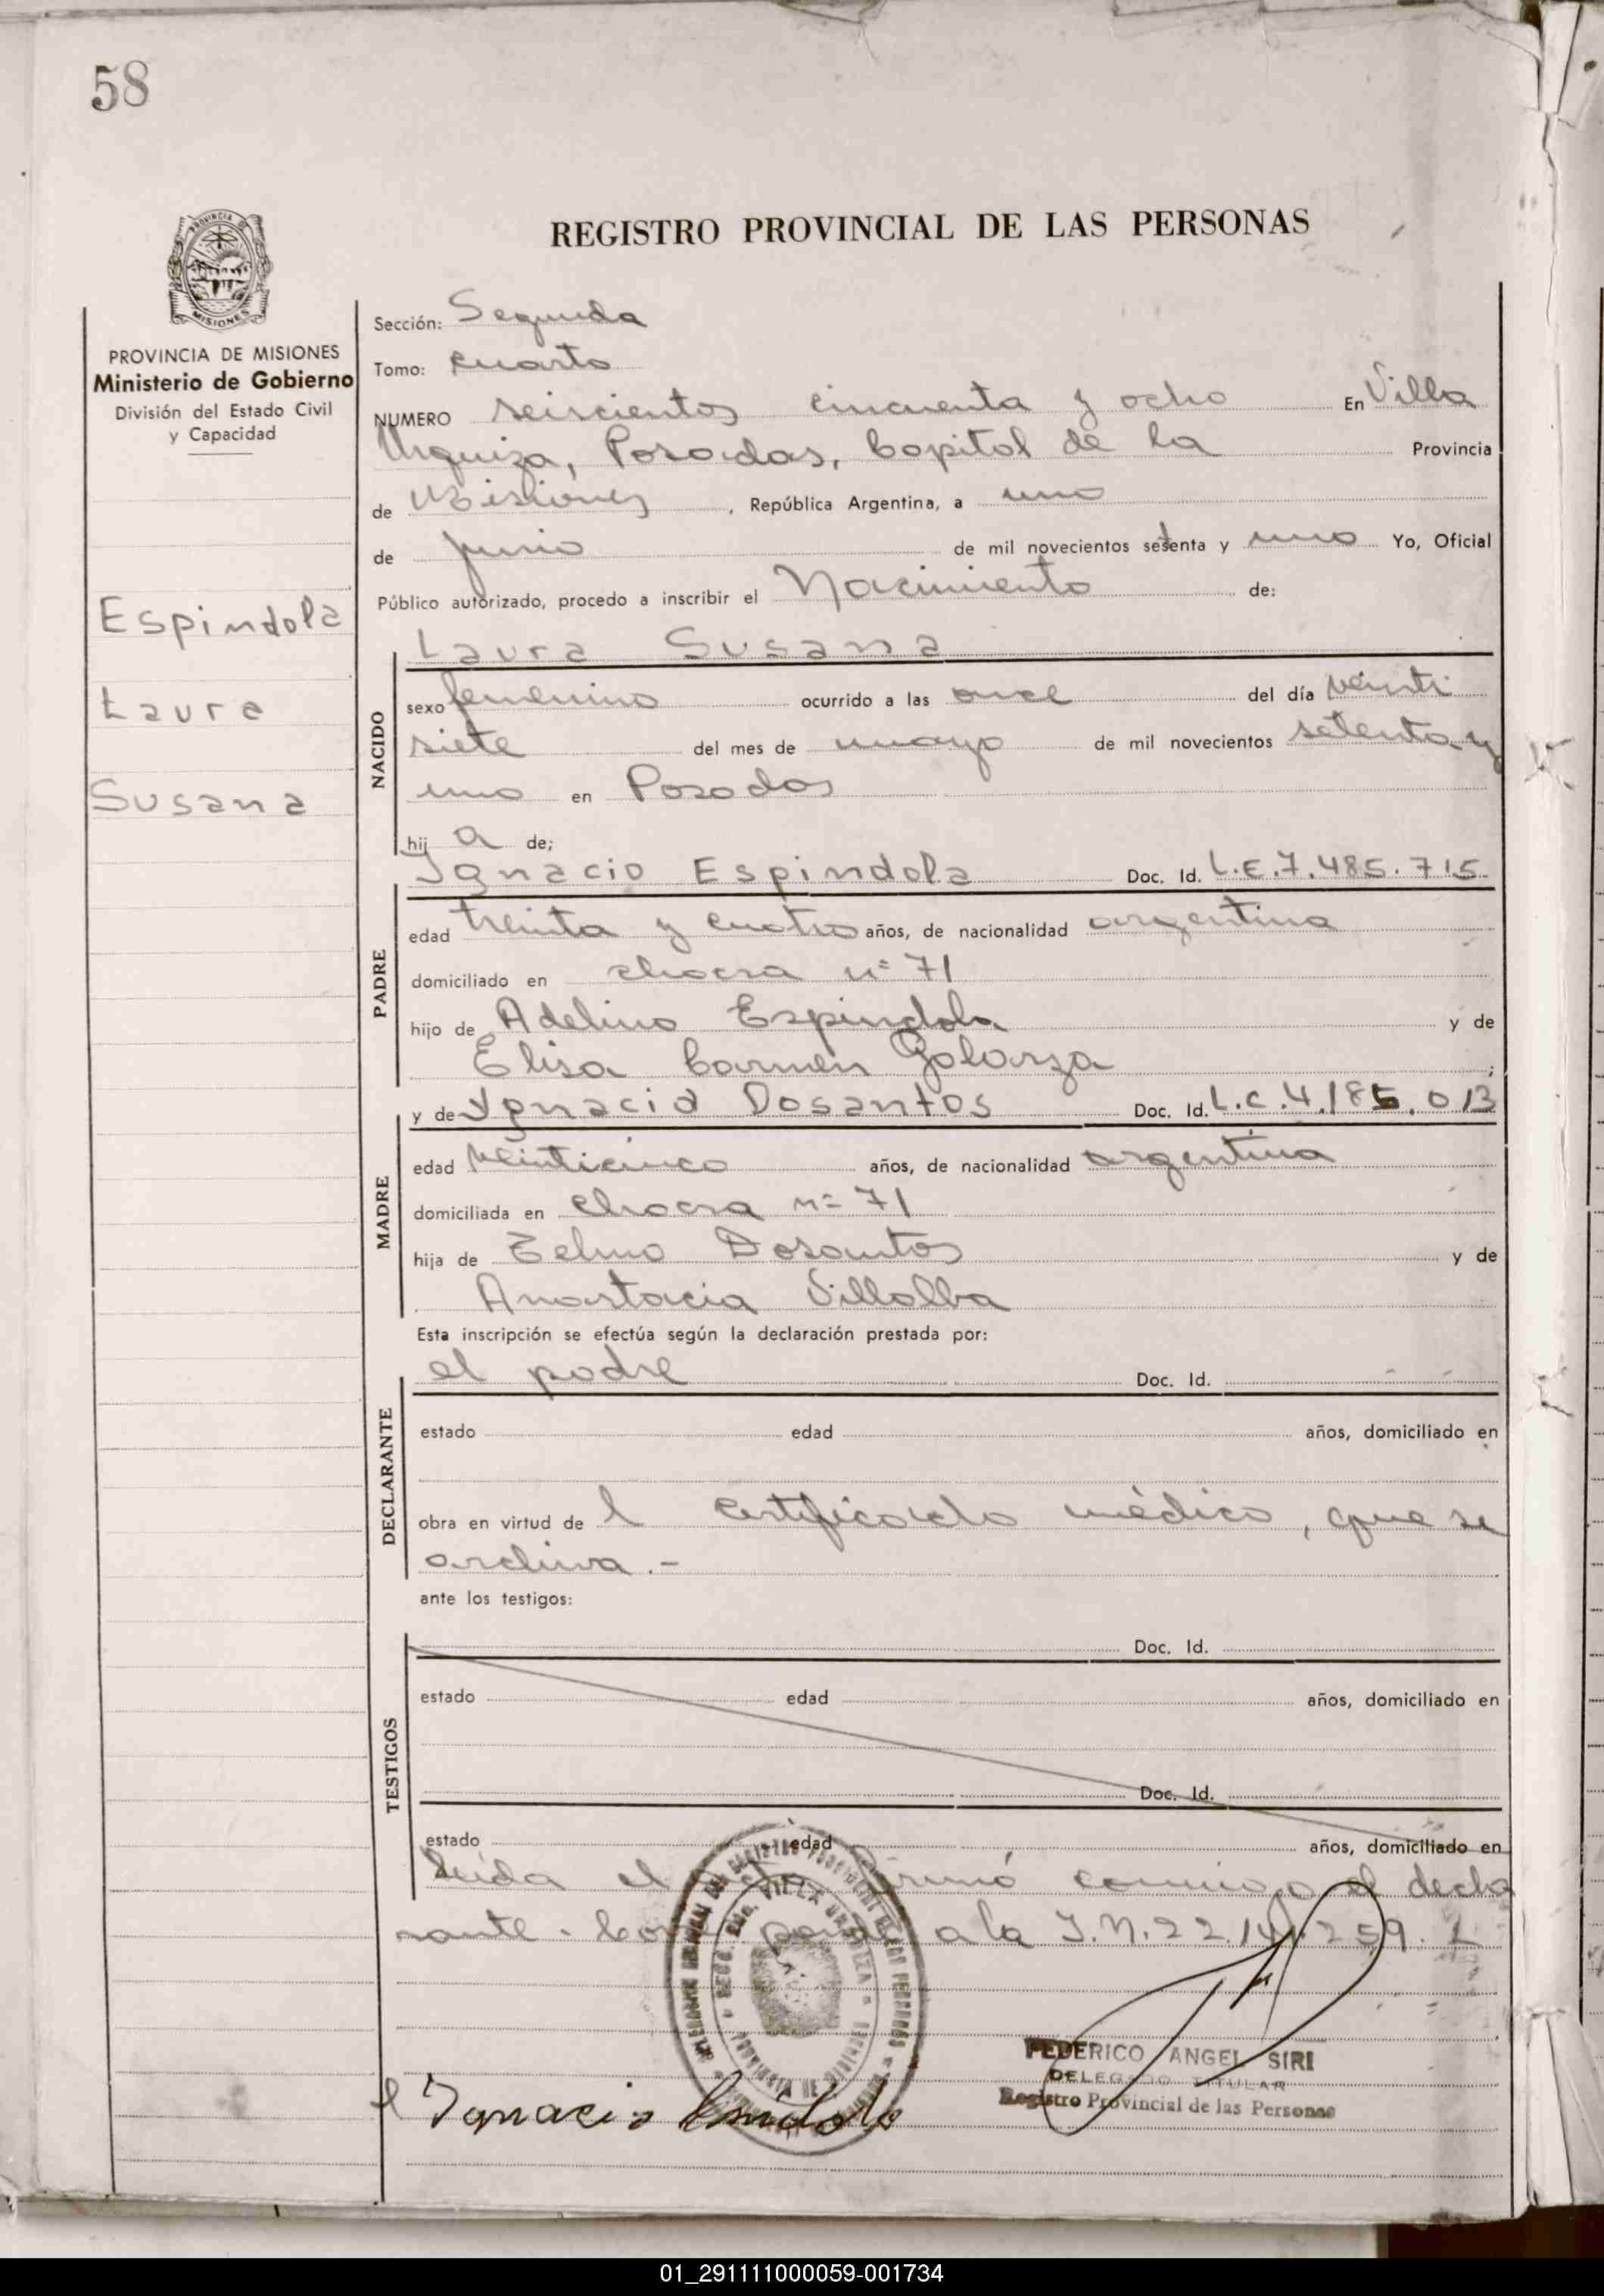 58
PROVINCIA
MISIONES
REGISTRO PROVINCIAL DE LAS PERSONAS
PROVINCIA DE MISIONES
Ministerio de Gobierno
División del Estado Civil
y Capacidad
Espindola
Laura
Susana
Sección: Segunda
Tomo: cuarto
NUMERO seiscientos cincuenta y ocho En Villa
Urquiza, Posadas, Capital de la Provincia
de Misiones, República Argentina, a uno
de junio de mil novecientos setenta y uno Yo, Oficial
Público autorizado, procedo a inscribir el Nacimiento de:
Laura Susana
NACIDO
sexo femenino ocurrido a las once del día veinti
siete del mes de mayo de mil novecientos setenta y
uno en Posadas
hij a de;
Ignacio Espindola Doc. Id. L.E.7.485.715.
PADRE
edad treinta y cuatro años, de nacionalidad argentina
domiciliado en chacra nº 71
hijo de Adelino Espindola y de
Elisa Carmen Galarza ;
y de Ygnacia Dosantos Doc. Id. L.C.4.185.013
MADRE
edad veinticinco años, de nacionalidad argentina
domiciliada en chacra nº 71
hija de Telmo Dosantos y de
Anastacia Villalba
Esta inscripción se efectúa según la declaración prestada por:
el padre Doc. Id.
DECLARANTE
estado edad años, domiciliado en
obra en virtud de l certificado médico, que se
archiva.-
ante los testigos:
TESTIGOS
Doc. Id.
estado edad años, domiciliado en
Doc. Id.
estado edad años, domiciliado en
Leída el acta firmó conmigo el decla
rante. a la I.N.22.141.259.
FEDERICO ANGEL SIRI
DELEGADO TITULAR
Registro Provincial de las Personas
Ignacio Espindola
01_291111000059-001734